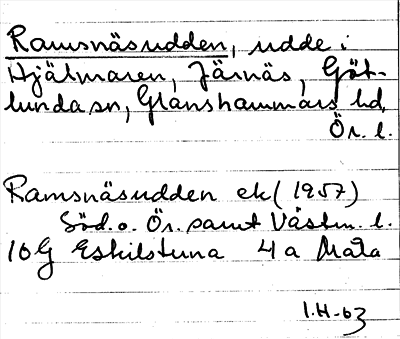 Ramsnäsudden, udde i
Hjälmaren, Järnäs, Göt-
lunda sn, Glanshammars hd,
Ör. l.
Ramsnäsudden ek (1957)
Söd. o. Ör. samt Västm. l.
10G Eskilstuna 4a Mala
I.H-63